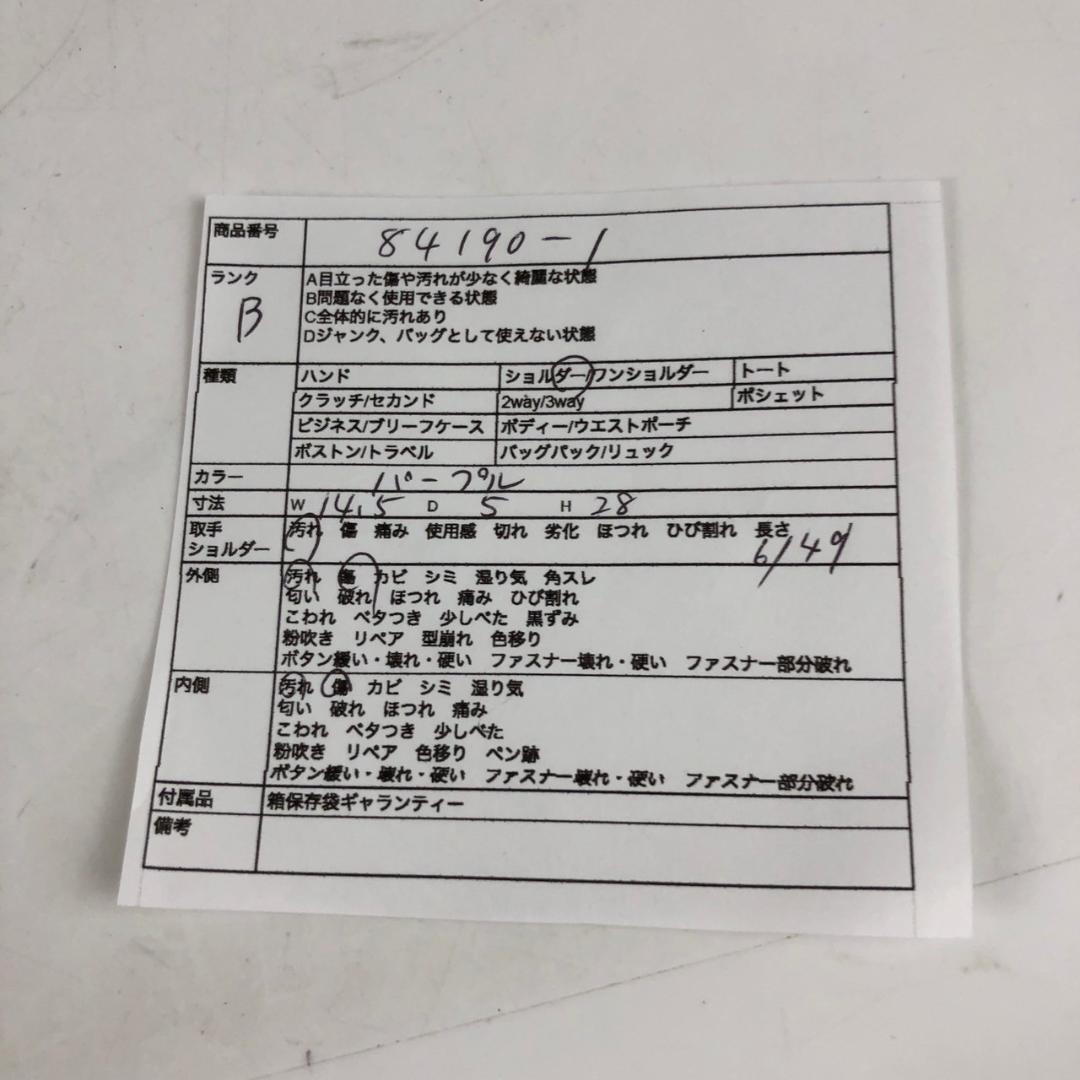 商品番号 84190-1
ランク B
A目立った傷や汚れが少なく綺麗な状態
B問題なく使用できる状態
C全体的に汚れあり
Dジャンク、バッグとして使えない状態
種類 ハンド ショルダー/ワンショルダー トート
クラッチ/セカンド 2way/3way ポシェット
ビジネス/ブリーフケース ボディー/ウエストポーチ
ボストン/トラベル バッグパック/リュック
カラー パープル
寸法 W 14.5 D 5 H 28
取手 汚れ 傷 痛み 使用感 切れ 劣化 ほつれ ひび割れ 長さ
ショルダー 61/49
外側 汚れ 傷 カビ シミ 湿り気 角スレ
匂い 破れ ほつれ 痛み ひび割れ
こわれ ベタつき 少しべた 黒ずみ
粉吹き リペア 型崩れ 色移り
ボタン緩い・壊れ・硬い ファスナー壊れ・硬い ファスナー部分破れ
内側 汚れ 傷 カビ シミ 湿り気
匂い 破れ ほつれ 痛み
こわれ ベタつき 少しべた
粉吹き リペア 色移り ペン跡
ボタン緩い・壊れ・硬い ファスナー壊れ・硬い ファスナー部分破れ
付属品 箱保存袋ギャランティー
備考